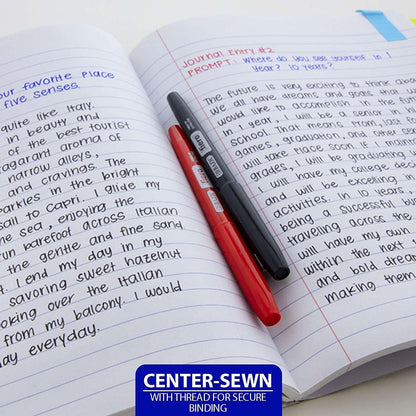 our favorite place
five senses.
quite like Italy.
in beauty and
of the best tourist
fragrant aroma of
narrow alleys,
and cravings. The
parkles in the bright
sail to Capri. I glide my
he sea, enjoying the
run barefoot across Italian
the gentle and fine sand
. I end my day in my
savoring sweet hazelnut
oking over the Italian
from my balcony. I would
ay everyday.
Journal Entry #2
PROMPT: Where do you see yourself in 1
Year? 10 years?
The future is very exciting to think about
we all have dreams and goals that
would like to accomplish in the
in 1 year, I will be a senior in
school. That means prom,
games, graduation, and other
will take place soon. If I maintain
grades, I will be graduating
I will have my college
and will be excelling
activities. In 10 years
being a successful
traveling across the
will have my own
within the next
and bold dream
making them
CENTER-SEWN
WITH THREAD FOR SECURE
BINDING